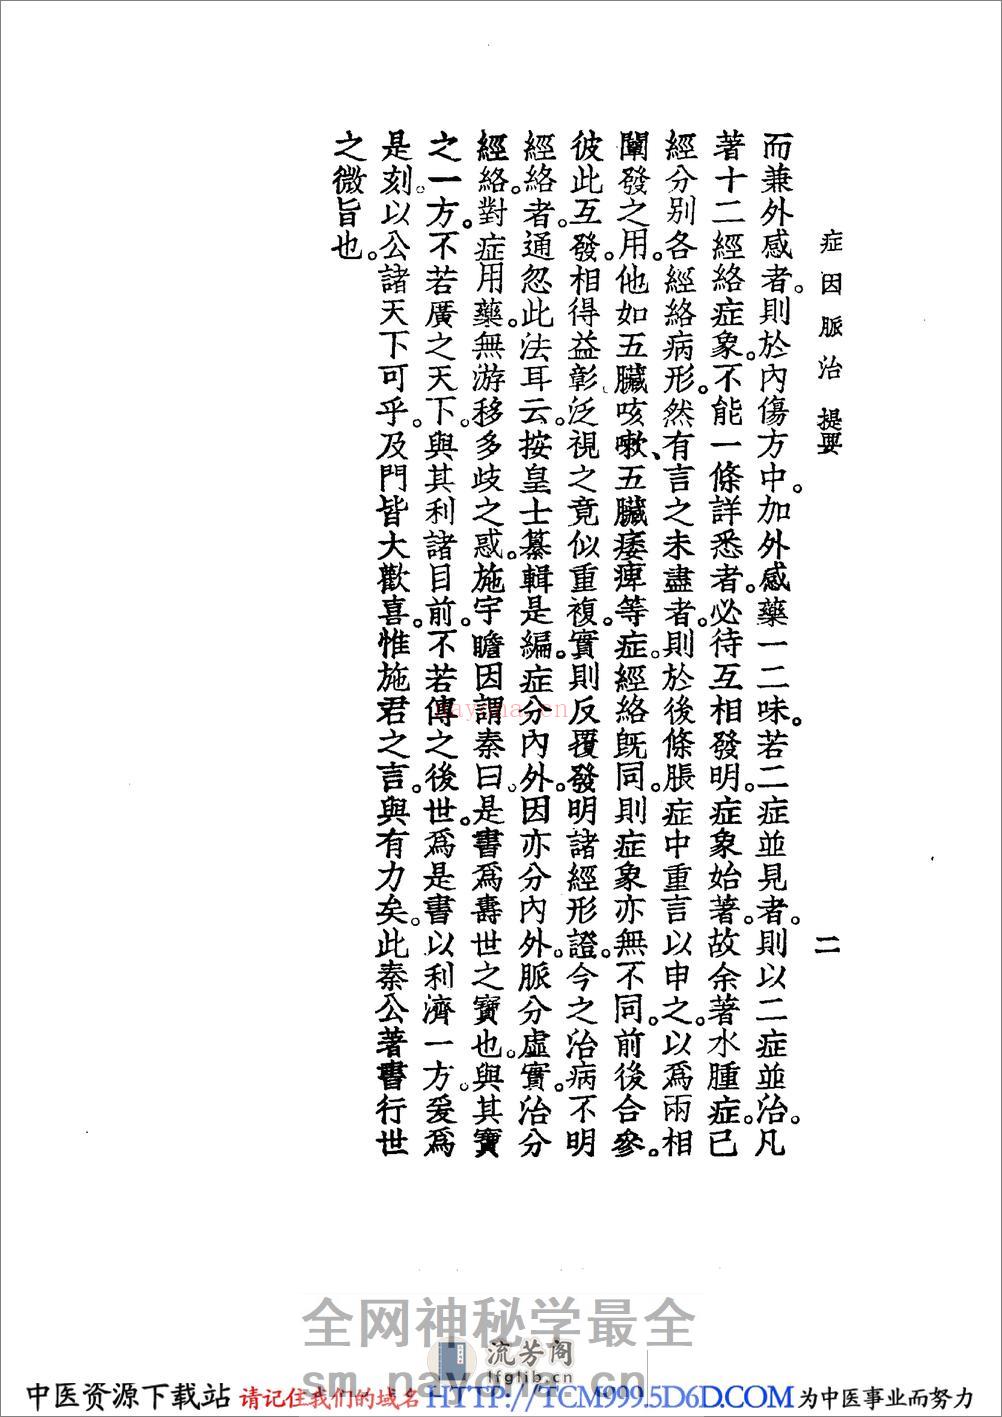 症因脈治 提要 二
而兼外感者。則於內傷方中。加外感藥一二味。若二症並見者。則以二症並治。凡
著十二經絡症象。不能一條詳悉者。必待互相發明。症象始著。故余著水腫症。已
經分別各經絡病形。然有言之未盡者。則於後條脹症中重言以申之。以爲兩相
闡發之用。他如五臟咳嗽、五臟痿痺等症。經絡既同。則症象亦無不同。前後合參。
彼此互發。相得益彰。泛視之竟似重複。實則反覆發明諸經形證。今之治病。不明
經絡者。通忽此法耳云。按皇士纂輯是編。症分內外。因亦分內外。脈分虛實。治分
經絡。對症用藥。無游移多歧之惑。施宇瞻因謂秦曰。是書爲壽世之寶也。與其寶
之一方。不若廣之天下。與其利諸目前。不若傳之後世。爲是書以利濟一方。爰爲
是刻。以公諸天下可乎。及門皆大歡喜。惟施君之言。與有力矣。此秦公著書行世
之微旨也。
nayona.cn
全网神秘学最全
流芳阁
lfglib.cn
sm.nayona.cn
中医资源下载站 请记住我们的域名 HTTP://TCM999.5D6D.COM 为中医事业而努力